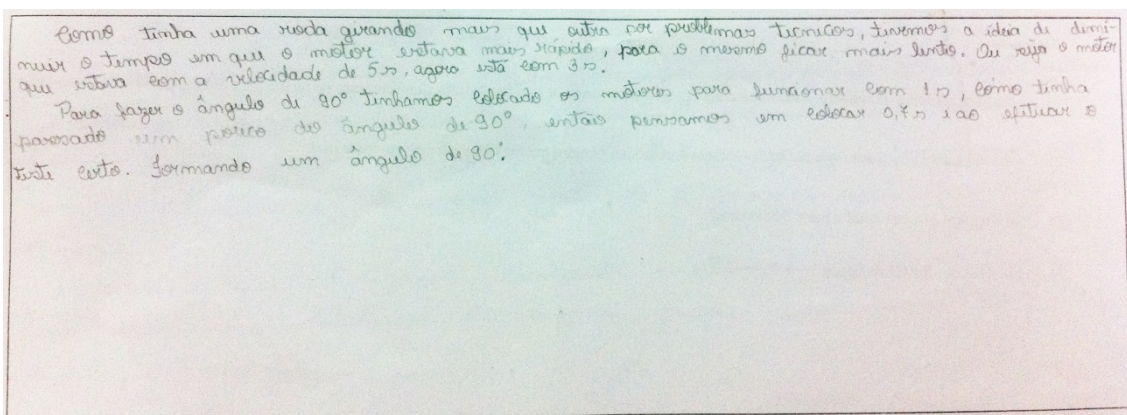 Como tinha uma roda girando mais que outra por problemas tecnicos, tivemos a ideia de dimi-
nuir o tempo em que o motor estava mais rápido, para o mesmo ficar mais lento. Ou seja o motor
que estava com a velocidade de 5s, agora está com 3s.
Para fazer o ângulo de 90° tinhamos colocado os motores para funcionar com 1s, como tinha
passado um pouco do ângulo de 90°, então pensamos em colocar 0,7s e ao efetuar o
teste certo. Formando um ângulo de 90°.